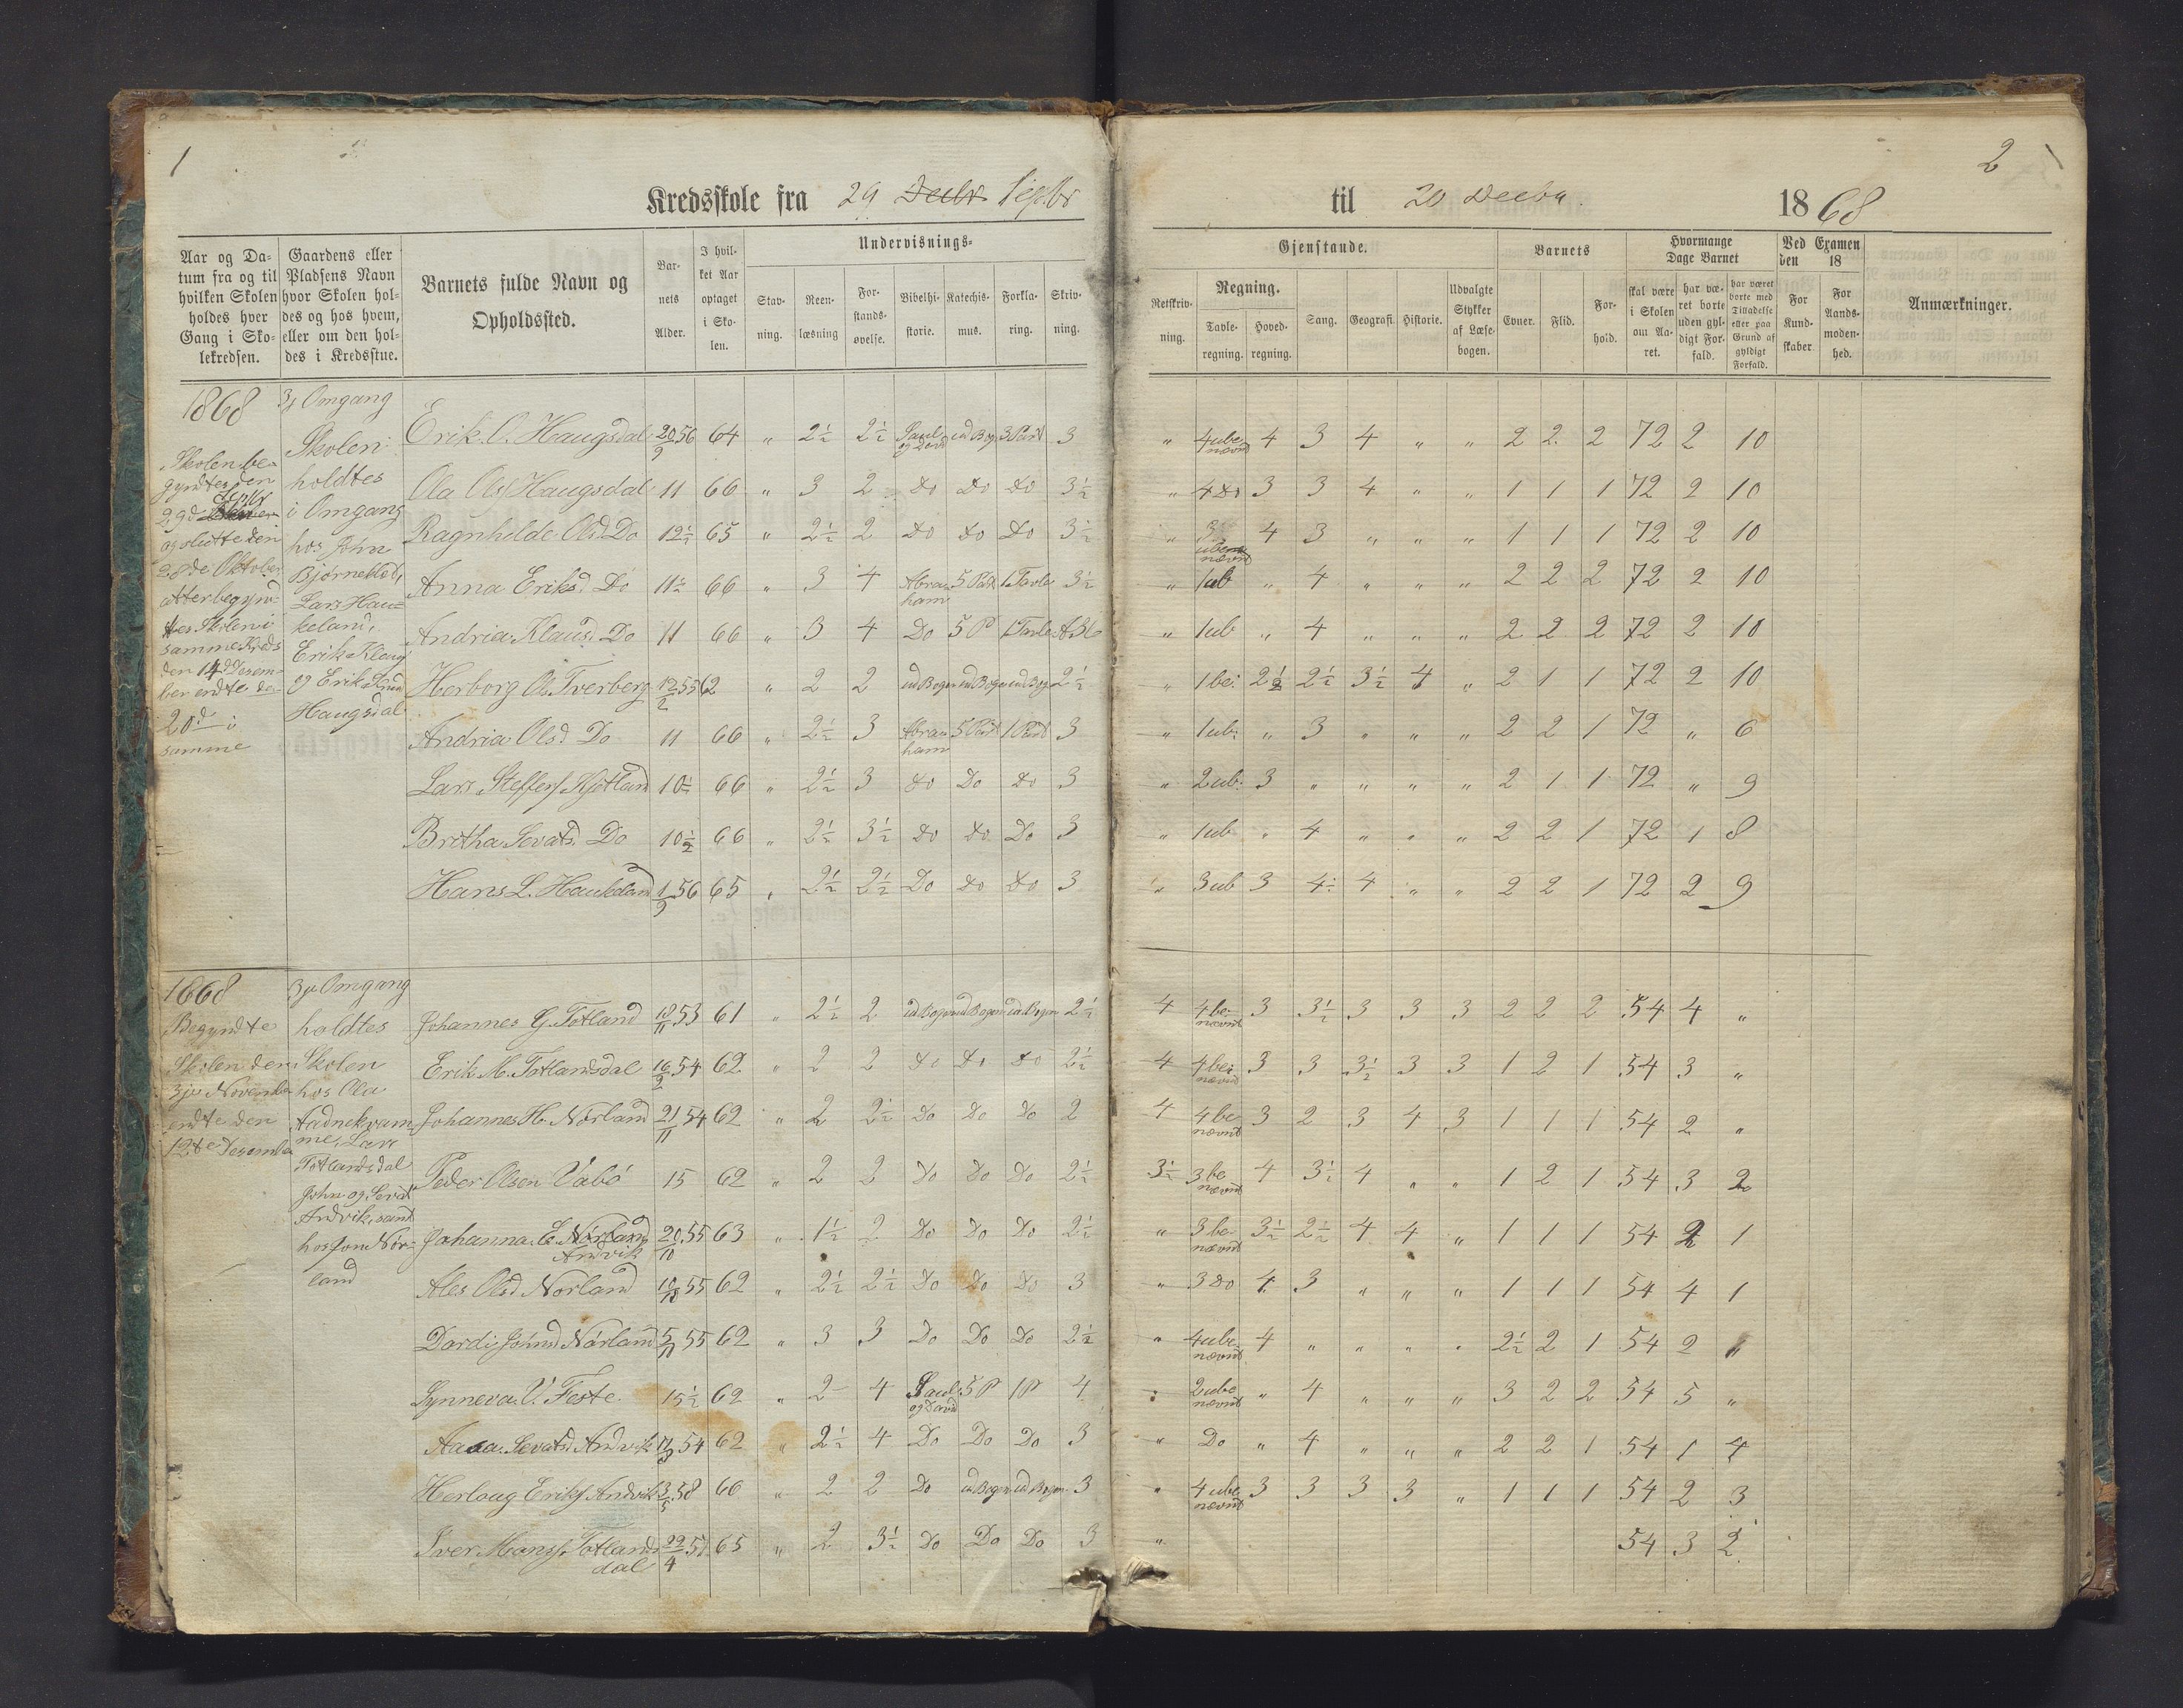 1
2
Kredsskole fra 29 Decbr Sepbr
til 20 Decbr. 1868
Aar og Da-
tum fra og til
hvilken Skolen
holdes hver
Gang i Sko-
lekredsen.
Gaardens eller
Pladsens Navn
hvor Skolen hol-
des og hos hvem,
eller om den hol-
des i Kredsstue.
Barnets fulde Navn og
Opholdssted.
Bar-
nets
Alder.
I hvil-
ket Aar
optaget
i Sko-
len.
Undervisnings-
Stav-
ning.
Reen-
læsning
For-
stands-
øvelse.
Bibelhi-
storie.
Katechis-
mus.
Forkla-
ring.
Skriv-
ning.
Gjenstande.
Retskriv-
ning.
Regning.
Tavle-
regning.
Hoved-
regning.
Sang.
Geografi.
Historie.
Udvalgte
Stykker
af Læse-
bogen.
Barnets
Evner.
Flid.
For-
hold.
Hvormange
Dage Barnet
skal være
i Skolen
om Aa-
ret.
har væ-
ret borte
uden gyl-
digt For-
fald.
har været
borte med
Tilladelse
eller paa
Grund af
gyldigt
Forfald.
Ved Examen
den 18
For
Kund-
skaber
For
Aands-
moden-
hed.
Anmærkninger.
1868
Skolen be-
gyndtes den
29d Septbr
og sluttede den
28de Oktober
atter begyn-
tes Skolen i
samme Kreds
den 14d Desem-
ber endte de
20d i
samme
3j Omgang
Skolen
holdtes
i Omgang
hos John
Bjørneklet,
Lars Hau-
keland,
Erik Klaus
og Erik Knud
Haugsdal
Erik O. Haugsdal 20/9 56 64 " 2½ 2½ Saul og David ud Bog 3 Part 3 " 4 ube nævnt 4 3 4 " " 2 2 2 72 2 10
Ola Ols Haugsdal 11 66 " 3 2 Do Do Do 3½ " 4 Do 3 3 4 " " 1 1 1 72 2 10
Ragnhilde Olsd Do 12½ 65 " 2½ 2 Do Do Do 3½ " 3 ube nævnt 4 3 " " " 1 1 1 72 2 10
Anna Eriksd Do 11½ 66 " 3 4 Abraham 5 Part 1 Tavle 3½ " 1 ub " 4 " " " 2 2 2 72 2 10
Andria Klausd Do 11 66 " 3 4 Do 5 P 1 Tavle " 1 ub " 4 " " " 2 2 2 72 2 10
Herborg Ols Tverberg 12/2 55 62 " 2 2 ud Bogen ud Bogen ud Bog 2½ " 1 be: 2½ 2½ 3½ 4 " 2 1 1 72 2 10
Andria Olsd Do 11 66 " 2½ 3 Abraham 5 Part 1 Part 3 " 1 ub: " 3 " " " 2 2 1 72 " 6
Lars Steffens Kjotland 10½ 66 " 2½ 3 Do Do Do 3 " 2 ub: 3 " " " " 2 1 1 72 " 9
Britha Sevatsd Do 10½ 66 " 2½ 3½ Do Do Do 3 " 1 ub " 4 " " " 2 2 1 72 1 8
Hans L. Haukeland 1/9 56 65 " 2½ 2½ Do Do Do 3 " 3 ub 3 4½ 4 " " 2 2 1 72 2 9
1868
Begyndte
Skolen den
3je November
endte den
12te Desember
3je Omgang
holdtes
Skolen
hos Ola
Aadnekvam
me, Lars
Totlandsdal
John og Sevat
Andvik, samt
hos Jon Nør-
land
Johannes G. Totland 18/11 53 61 " 2½ 2 ud Bogen ud Bogen ud Bogen 2½ 4 4 be: nævnt 3 3½ 3 3 3 2 2 2 54 4 "
Erik M. Totlandsdal 16/2 54 62 " 2 2 Do Do Do 2½ 4 4 be: nævnt 3 3 3½ 3 3 1 2 1 54 3 "
Johannes H. Nørland 21/11 54 62 " 2 2½ Do Do Do 2 4 4 be nævnt 3 2 3 4 3 1 1 1 54 2 "
Peder Olsen Vabø 15 62 " 2 2 Do Do Do 2½ 3½ 3 be nævnt 4 3½ 4 " " 1 2 1 54 3 2
Johanna E. Nørland Andvik 20/10 55 63 " 1½ 2 Do Do Do 2½ " 3 be nævnt 3½ 2½ 4 4 " 1 1 1 54 2 1
Ales Olsd Nørland 55 62 " 2½ 2½ Do Do Do 3 " 3 Do 4 3 " " " 1 1 1 54 4 1
Dardi Johnsd Nørland 5/11 55 62 " 3 3 Do Do Do 2½ " 4 ube nævnt 4 " " " " 2½ 2 1 54 2 "
Synneva V. Feste 15½ 62 " 2 4 Saul og David 5 P 1 P 4 " 2 ube nævnt " 4 " " " 3 2 2 54 5 "
Sevatsd Andvik 54 62 " 2½ 4 Do Do Do 3 " Do " 4 " " " 2 2 1 54 1 4
Herlaug Eriks Andvik 3/5 58 66 " 2 2 Do ud Bogen ud Bogen 3 " 4 ube nævnt 3 3 3 3 " 1 1 1 54 2 3
Iver Hanss. Totlands dal 22/4 57 65 " 2 3½ Do Do Do 3 " 54 3 2